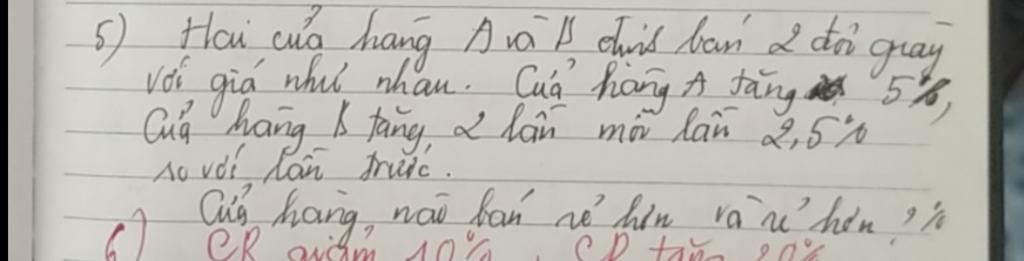 5) Hai cửa hàng A và B định bán 2 đôi giày
với giá như nhau. Cửa hàng A tăng 5%,
Cửa hàng B tăng 2 lần mỗi lần 2,5%
so với lần trước.
Cửa hàng nào bán rẻ hơn và rẻ hơn ?%
6) CR giảm 10%, CD tăng 20%